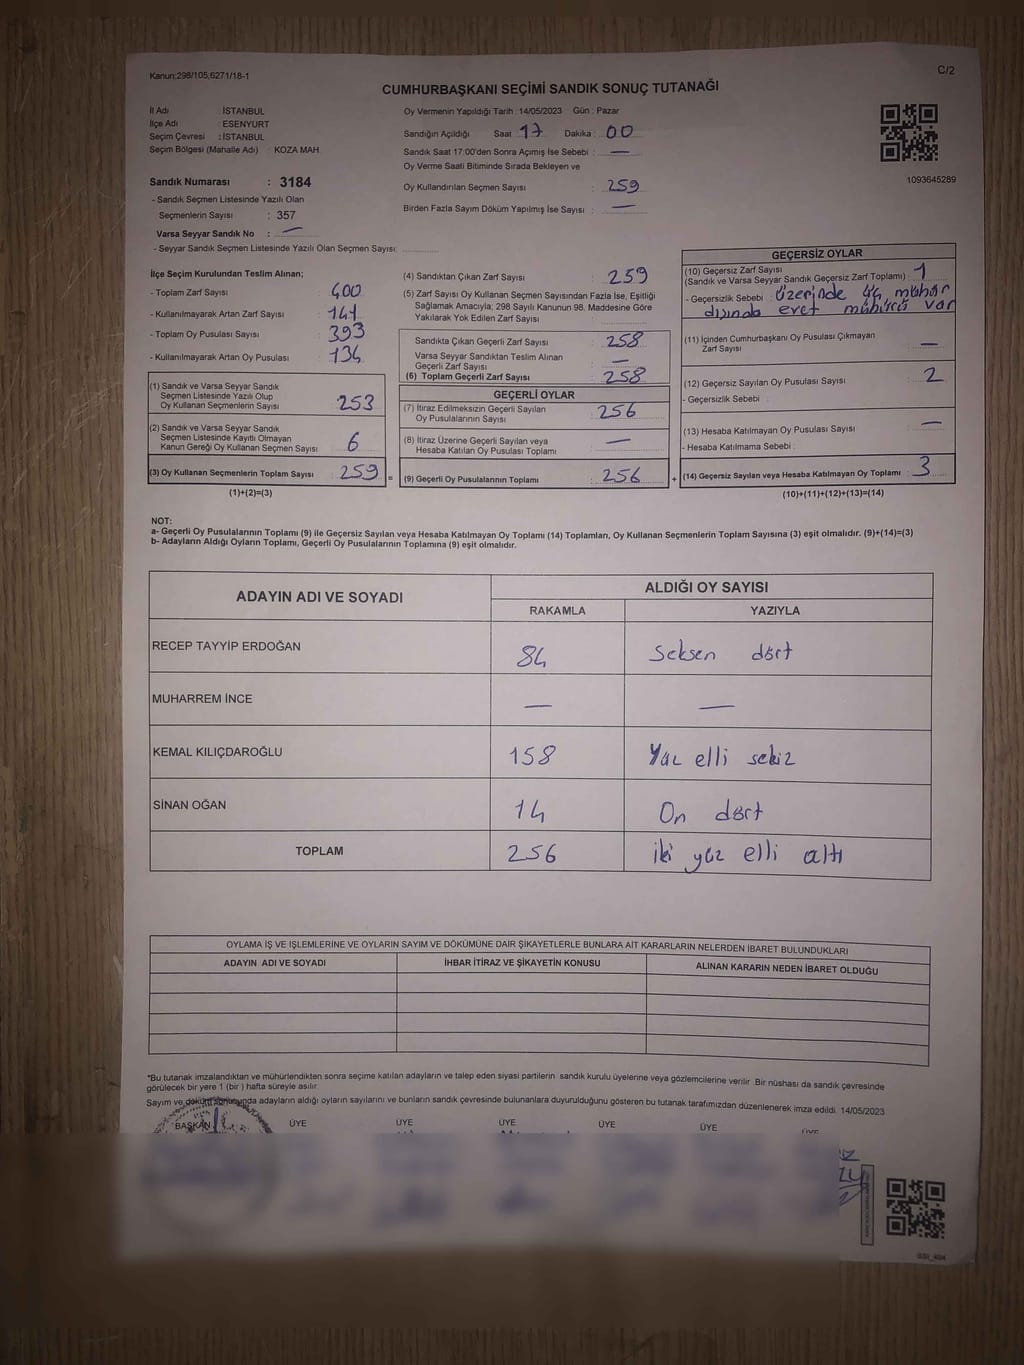 Kanun;298/105,6271/18-1
C/2
CUMHURBAŞKANI SEÇİMİ SANDIK SONUÇ TUTANAĞI
İl Adı : İSTANBUL
İlçe Adı : ESENYURT
Seçim Çevresi : İSTANBUL
Seçim Bölgesi (Mahalle Adı) : KOZA MAH.
Sandık Numarası : 3184
- Sandık Seçmen Listesinde Yazılı Olan
Seçmenlerin Sayısı : 357
Varsa Seyyar Sandık No : —
- Seyyar Sandık Seçmen Listesinde Yazılı Olan Seçmen Sayısı:
Oy Vermenin Yapıldığı Tarih : 14/05/2023 Gün : Pazar
Sandığın Açıldığı Saat : 17 Dakika : 00
Sandık Saat 17:00'den Sonra Açımış İse Sebebi : —
Oy Verme Saati Bitiminde Sırada Bekleyen ve
Oy Kullandırılan Seçmen Sayısı : 259
Birden Fazla Sayım Döküm Yapılmış İse Sayısı : —
1093645289
İlçe Seçim Kurulundan Teslim Alınan;
- Toplam Zarf Sayısı : 400
- Kullanılmayarak Artan Zarf Sayısı : 141
- Toplam Oy Pusulası Sayısı : 393
- Kullanılmayarak Artan Oy Pusulası : 134
(1) Sandık ve Varsa Seyyar Sandık
Seçmen Listesinde Yazılı Olup
Oy Kullanan Seçmenlerin Sayısı : 253
(2) Sandık ve Varsa Seyyar Sandık
Seçmen Listesinde Kayıtlı Olmayan
Kanun Gereği Oy Kullanan Seçmen Sayısı : 6
(3) Oy Kullanan Seçmenlerin Toplam Sayısı : 259 =
(1)+(2)=(3)
(4) Sandıktan Çıkan Zarf Sayısı : 259
(5) Zarf Sayısı Oy Kullanan Seçmen Sayısından Fazla İse, Eşitliği
Sağlamak Amacıyla, 298 Sayılı Kanunun 98. Maddesine Göre
Yakılarak Yok Edilen Zarf Sayısı :
Sandıkta Çıkan Geçerli Zarf Sayısı : 258
Varsa Seyyar Sandıktan Teslim Alınan
Geçerli Zarf Sayısı : —
(6) Toplam Geçerli Zarf Sayısı : 258
GEÇERLİ OYLAR
(7) İtiraz Edilmeksizin Geçerli Sayılan
Oy Pusulalarının Sayısı : 256
(8) İtiraz Üzerine Geçerli Sayılan veya
Hesaba Katılan Oy Pusulası Toplamı : —
(9) Geçerli Oy Pusulalarının Toplamı : 256 +
GEÇERSİZ OYLAR
(10) Geçersiz Zarf Sayısı
(Sandık ve Varsa Seyyar Sandık Geçersiz Zarf Toplamı) : 1
- Geçersizlik Sebebi : Üzerinde üç mühür
dışında evet mührü var
(11) İçinden Cumhurbaşkanı Oy Pusulası Çıkmayan
Zarf Sayısı : —
(12) Geçersiz Sayılan Oy Pusulası Sayısı : 2
- Geçersizlik Sebebi :
(13) Hesaba Katılmayan Oy Pusulası Sayısı : —
- Hesaba Katılmama Sebebi :
(14) Geçersiz Sayılan veya Hesaba Katılmayan Oy Toplamı : 3
(10)+(11)+(12)+(13)=(14)
NOT:
a- Geçerli Oy Pusulalarının Toplamı (9) ile Geçersiz Sayılan veya Hesaba Katılmayan Oy Toplamı (14) Toplamları, Oy Kullanan Seçmenlerin Toplam Sayısına (3) eşit olmalıdır. (9)+(14)=(3)
b- Adayların Aldığı Oyların Toplamı, Geçerli Oy Pusulalarının Toplamına (9) eşit olmalıdır.
ADAYIN ADI VE SOYADI
ALDIĞI OY SAYISI
RAKAMLA YAZIYLA
RECEP TAYYİP ERDOĞAN 84 Seksen dört
MUHARREM İNCE — —
KEMAL KILIÇDAROĞLU 158 Yüz elli sekiz
SİNAN OĞAN 14 On dört
TOPLAM 256 iki yüz elli altı
OYLAMA İŞ VE İŞLEMLERİNE VE OYLARIN SAYIM VE DÖKÜMÜNE DAİR ŞİKAYETLERLE BUNLARA AİT KARARLARIN NELERDEN İBARET BULUNDUKLARI
ADAYIN ADI VE SOYADI İHBAR İTİRAZ VE ŞİKAYETİN KONUSU ALINAN KARARIN NEDEN İBARET OLDUĞU
*Bu tutanak imzalandıktan ve mühürlendikten sonra seçime katılan adayların ve talep eden siyasi partilerin sandık kurulu üyelerine veya gözlemcilerine verilir. Bir nüshası da sandık çevresinde
görülecek bir yere 1 (bir) hafta süreyle asılır.
Sayım ve dökümü sonucunda adayların aldığı oyların sayılarını ve bunların sandık çevresinde bulunanlara duyurulduğunu gösteren bu tutanak tarafımızdan düzenlenerek imza edildi. 14/05/2023
BAŞKAN ÜYE ÜYE ÜYE ÜYE ÜYE ÜYE